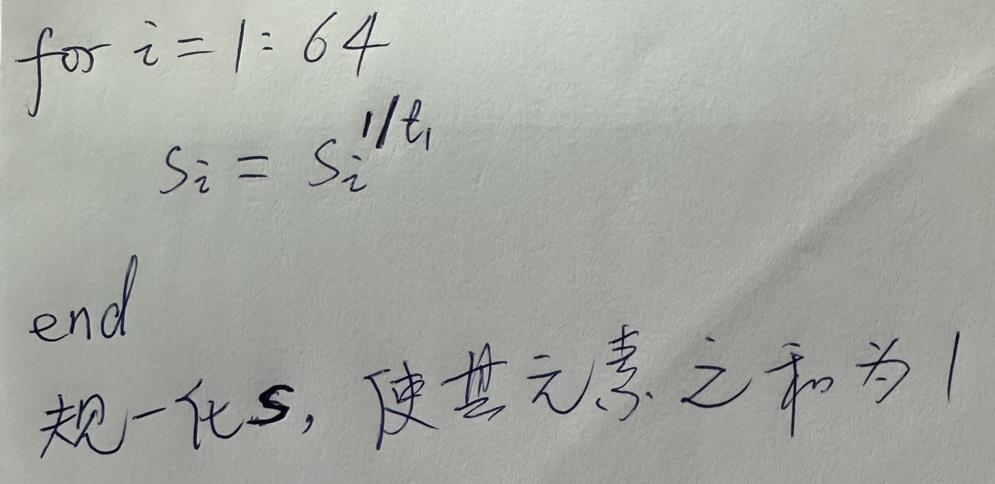 for i = 1 : 64
s_i = s_i^{1/t_1}
end
规一化s, 使其元素之和为1